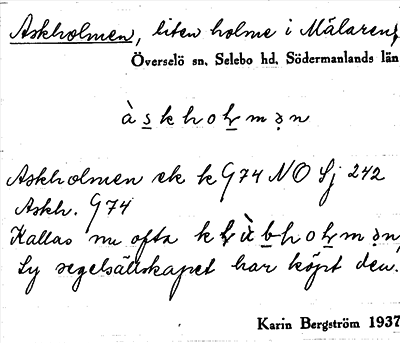 Askholmen, liten holme i Mälaren,
Överselö sn, Selebo hd, Södermanlands län
à s k h o l m ə n
Askholmen ek k G74 NO Sj 242
Askh. G74
Kallas nu ofta k l ù b h o l m ə n,
ty segelsällskapet har köpt den.
Karin Bergström 1937